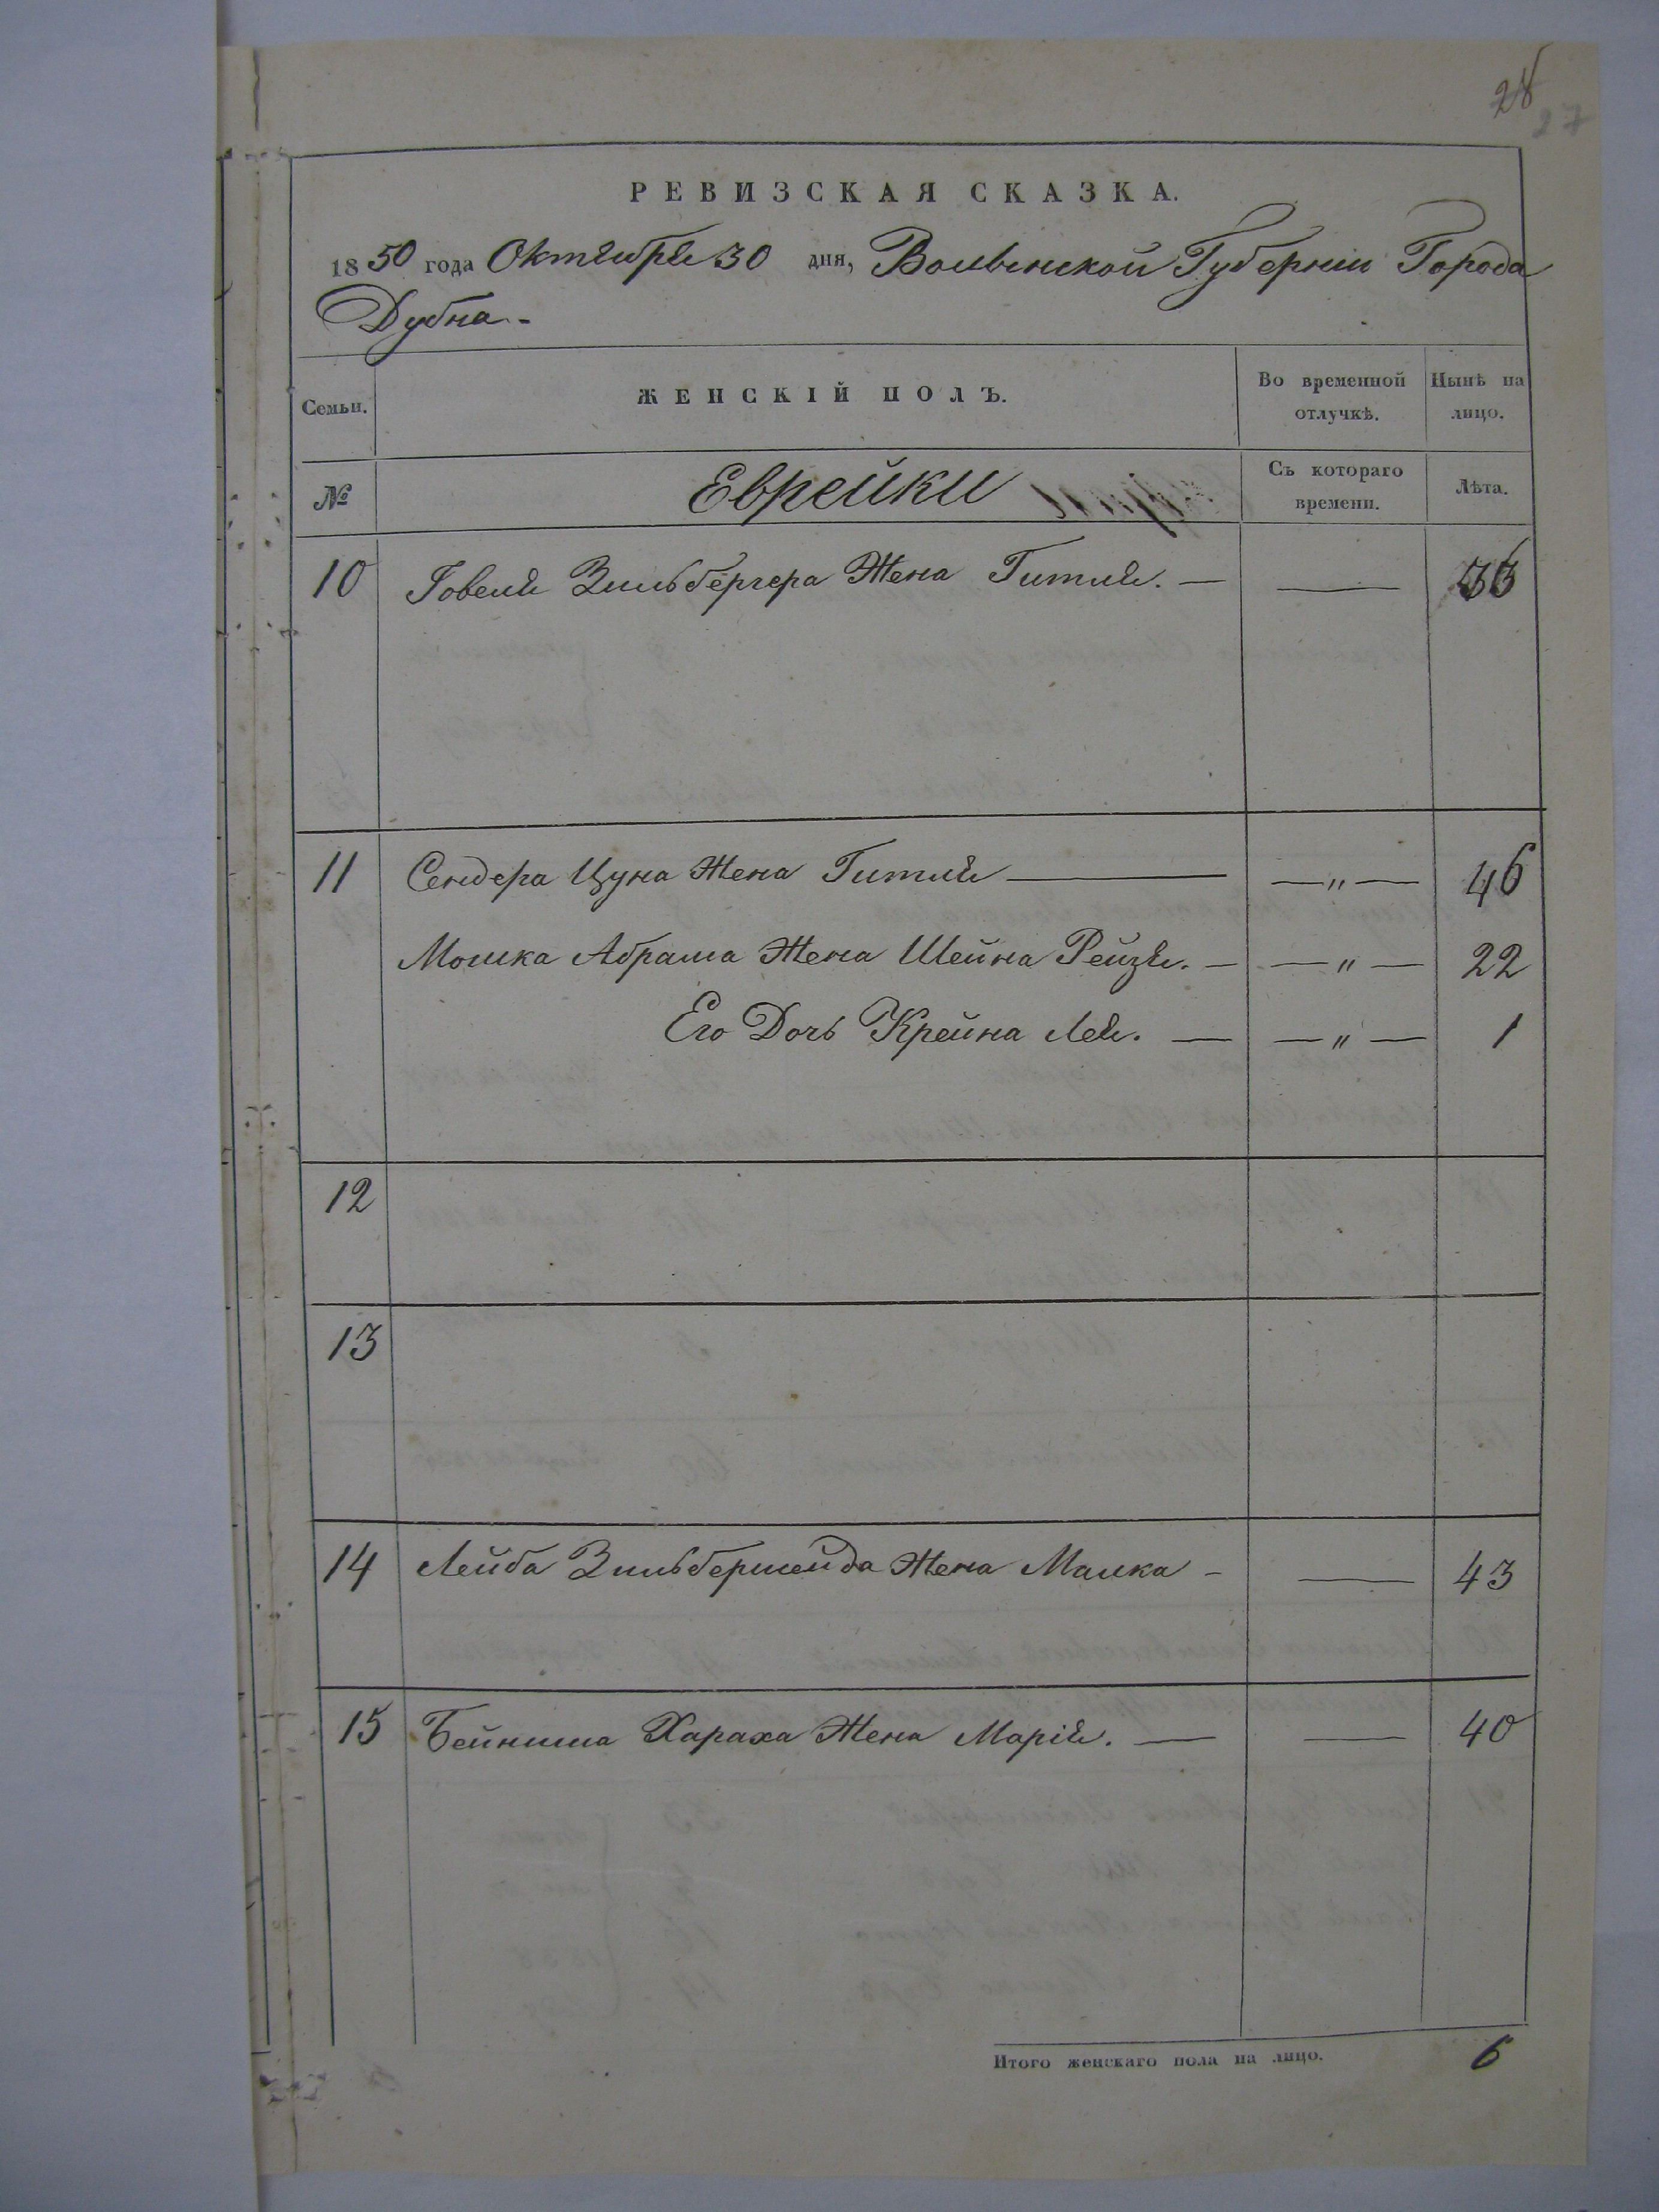 28
27
РЕВИЗСКАЯ СКАЗКА.
1850 года Октября 30 дня, Волынской Губерніи Города
Дубна.
Семьи. ЖЕНСКІЙ ПОЛЪ. Во временной отлучкѣ. Нынѣ на лицо.
№ Еврейки Съ котораго времени. Лѣта.
10 Говеля Зильбергера Жена Гитля. —
11 Сендера Цуна Жена Гитля — — " — 46
Мошка Абрама Жена Шейна Рейзя. — — " — 22
Его Дочь Крейна Лея. — — " — 1
12
13
14 Лейба Зильбершейда Жена Малка - — 43
15 Бейниша Хараха Жена Марія. — — 40
Итого женскаго пола на лицо. 6